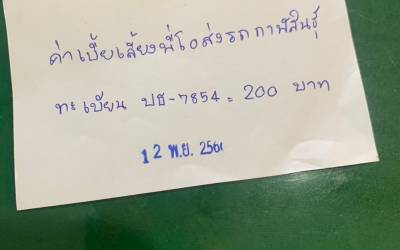 ค่าเบี้ยเลี้ยงพี่โอส่งรถกาฬสินธุ์
ทะเบียน ปธ-7854 = 200 บาท
12 พ.ย. 256